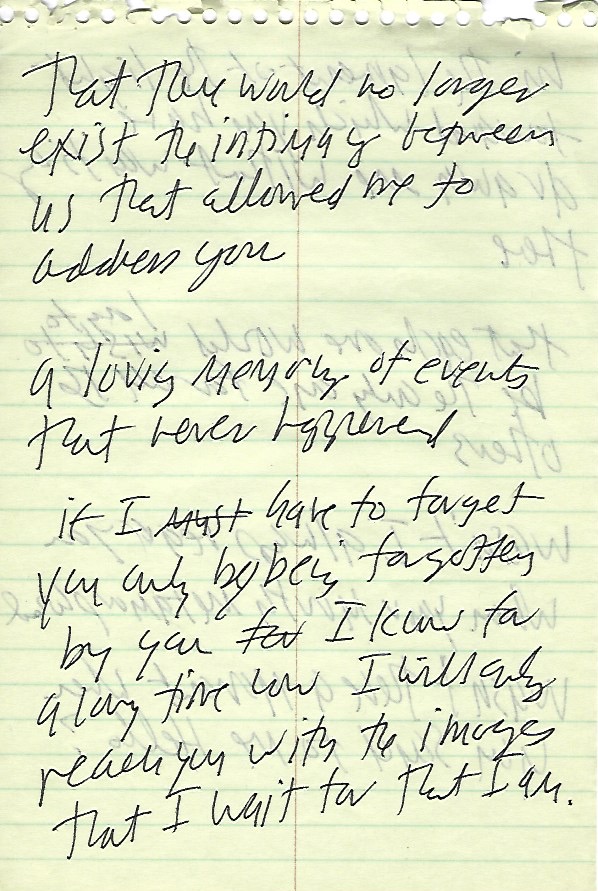 that there would no longer
exist the intimacy between
us that allowed me to
address you
a loving memory of events
that never happened
if I must have to forget
you only by being forgotten
by you for I know for
a long time now I will only
reach you with the images
that I wait for that I am.